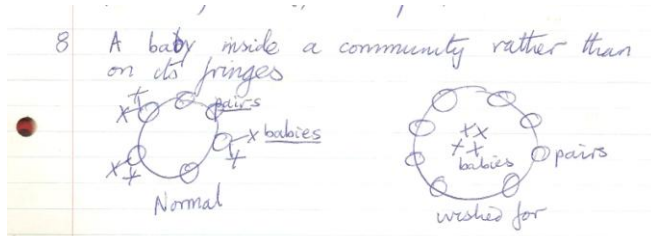 8 A baby inside a community rather than
on its fringes
pairs
babies
Normal
babies
pairs
wished for